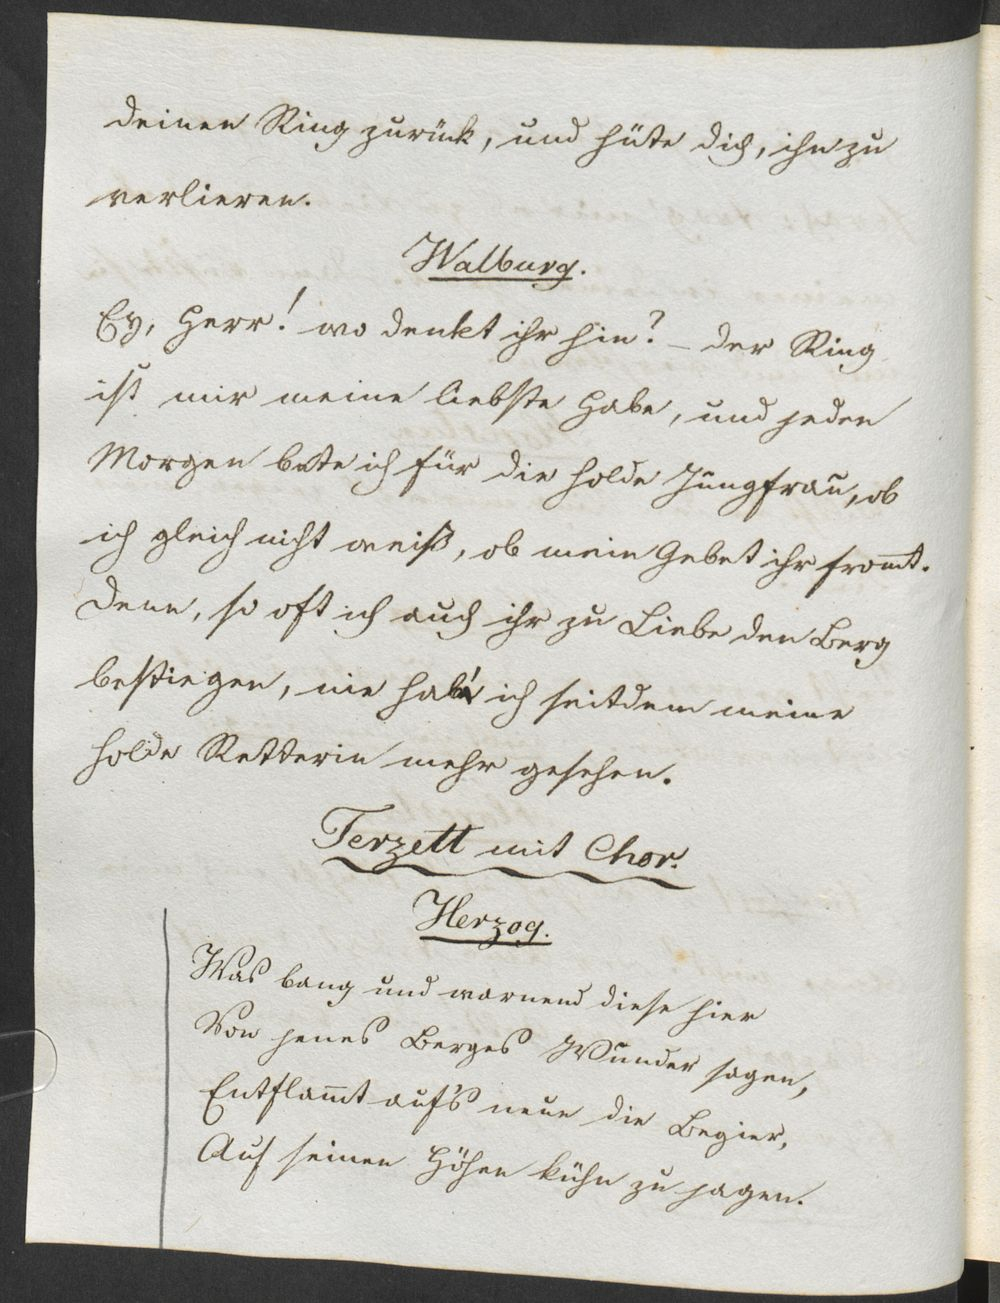 deinen Ring zurück, und hüte dich, ihn zu
verlieren.
Walburg.
Ey, Herr! wo denkt ihr hin? – der Ring
ist mir meine liebste Habe, und jeden
Morgen bete ich für die holde Jungfrau, ob
ich gleich nicht weiß, ob mein Gebet ihr from̅t.
Denn, so oft ich auch ihr zu Liebe den Berg
bestiegen, nie hab' ich seitdem meine
holde Retterin mehr gesehen.
Terzett mit Chor.
Herzog.
Was bang und warnend diese hier
Von jenes Berges Wunder sagen,
Entflam̅t auf's neue die Begier,
Auf seinen Höhen kühn zu jagen.